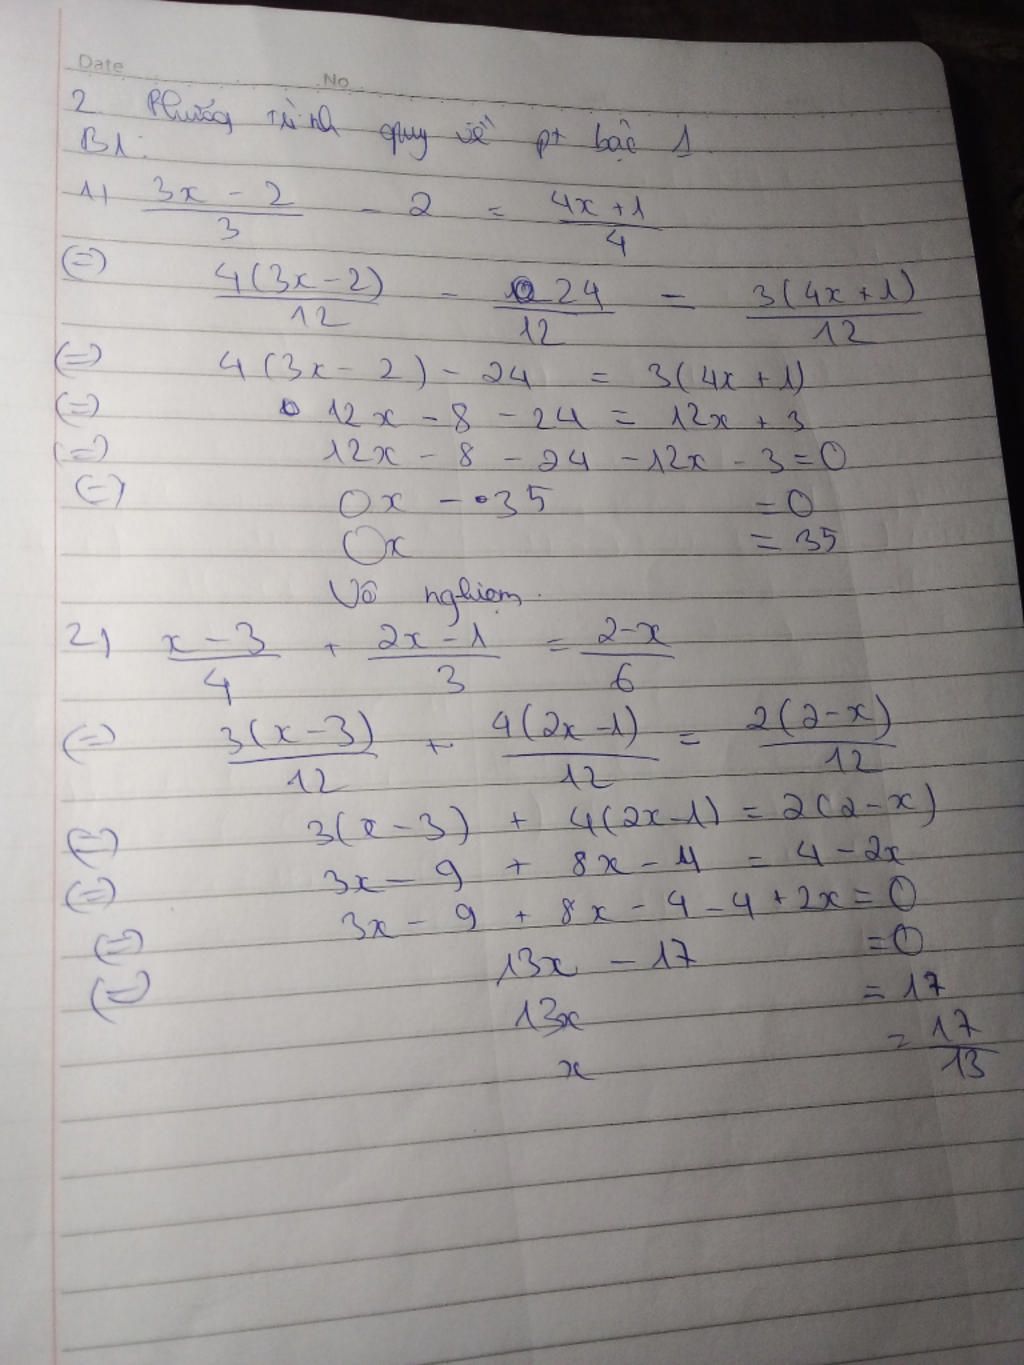 Date No
2 Phương trình quy về pt bậc 1
B1:
1) \frac{3x - 2}{3} - 2 = \frac{4x + 1}{4}
(=) \frac{4(3x - 2)}{12} - \frac{24}{12} = \frac{3(4x + 1)}{12}
(=) 4(3x - 2) - 24 = 3(4x + 1)
(=) 12x - 8 - 24 = 12x + 3
(=) 12x - 8 - 24 - 12x - 3 = 0
(=) 0x - 35 = 0
0x = 35
Vô nghiệm.
2) \frac{x - 3}{4} + \frac{2x - 1}{3} = \frac{2 - x}{6}
(=) \frac{3(x - 3)}{12} + \frac{4(2x - 1)}{12} = \frac{2(2 - x)}{12}
(=) 3(x - 3) + 4(2x - 1) = 2(2 - x)
(=) 3x - 9 + 8x - 4 = 4 - 2x
(=) 3x - 9 + 8x - 4 - 4 + 2x = 0
(=) 13x - 17 = 0
13x = 17
x = \frac{17}{13}